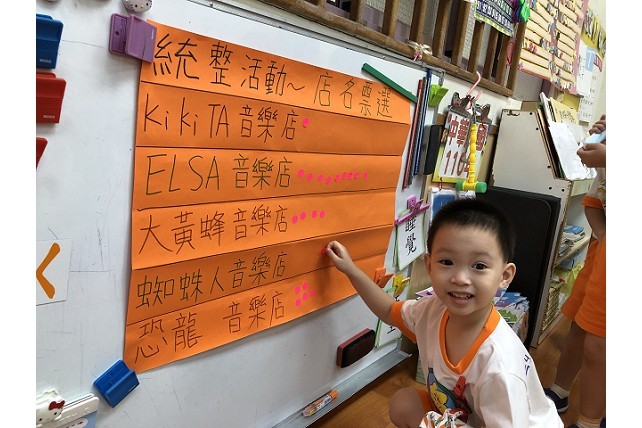 統整活動~店名票選
KiKiTA音樂店
ELSA音樂店
大黃蜂音樂店
蜘蛛人音樂店
恐龍 音樂店
睡覺
ㄑ